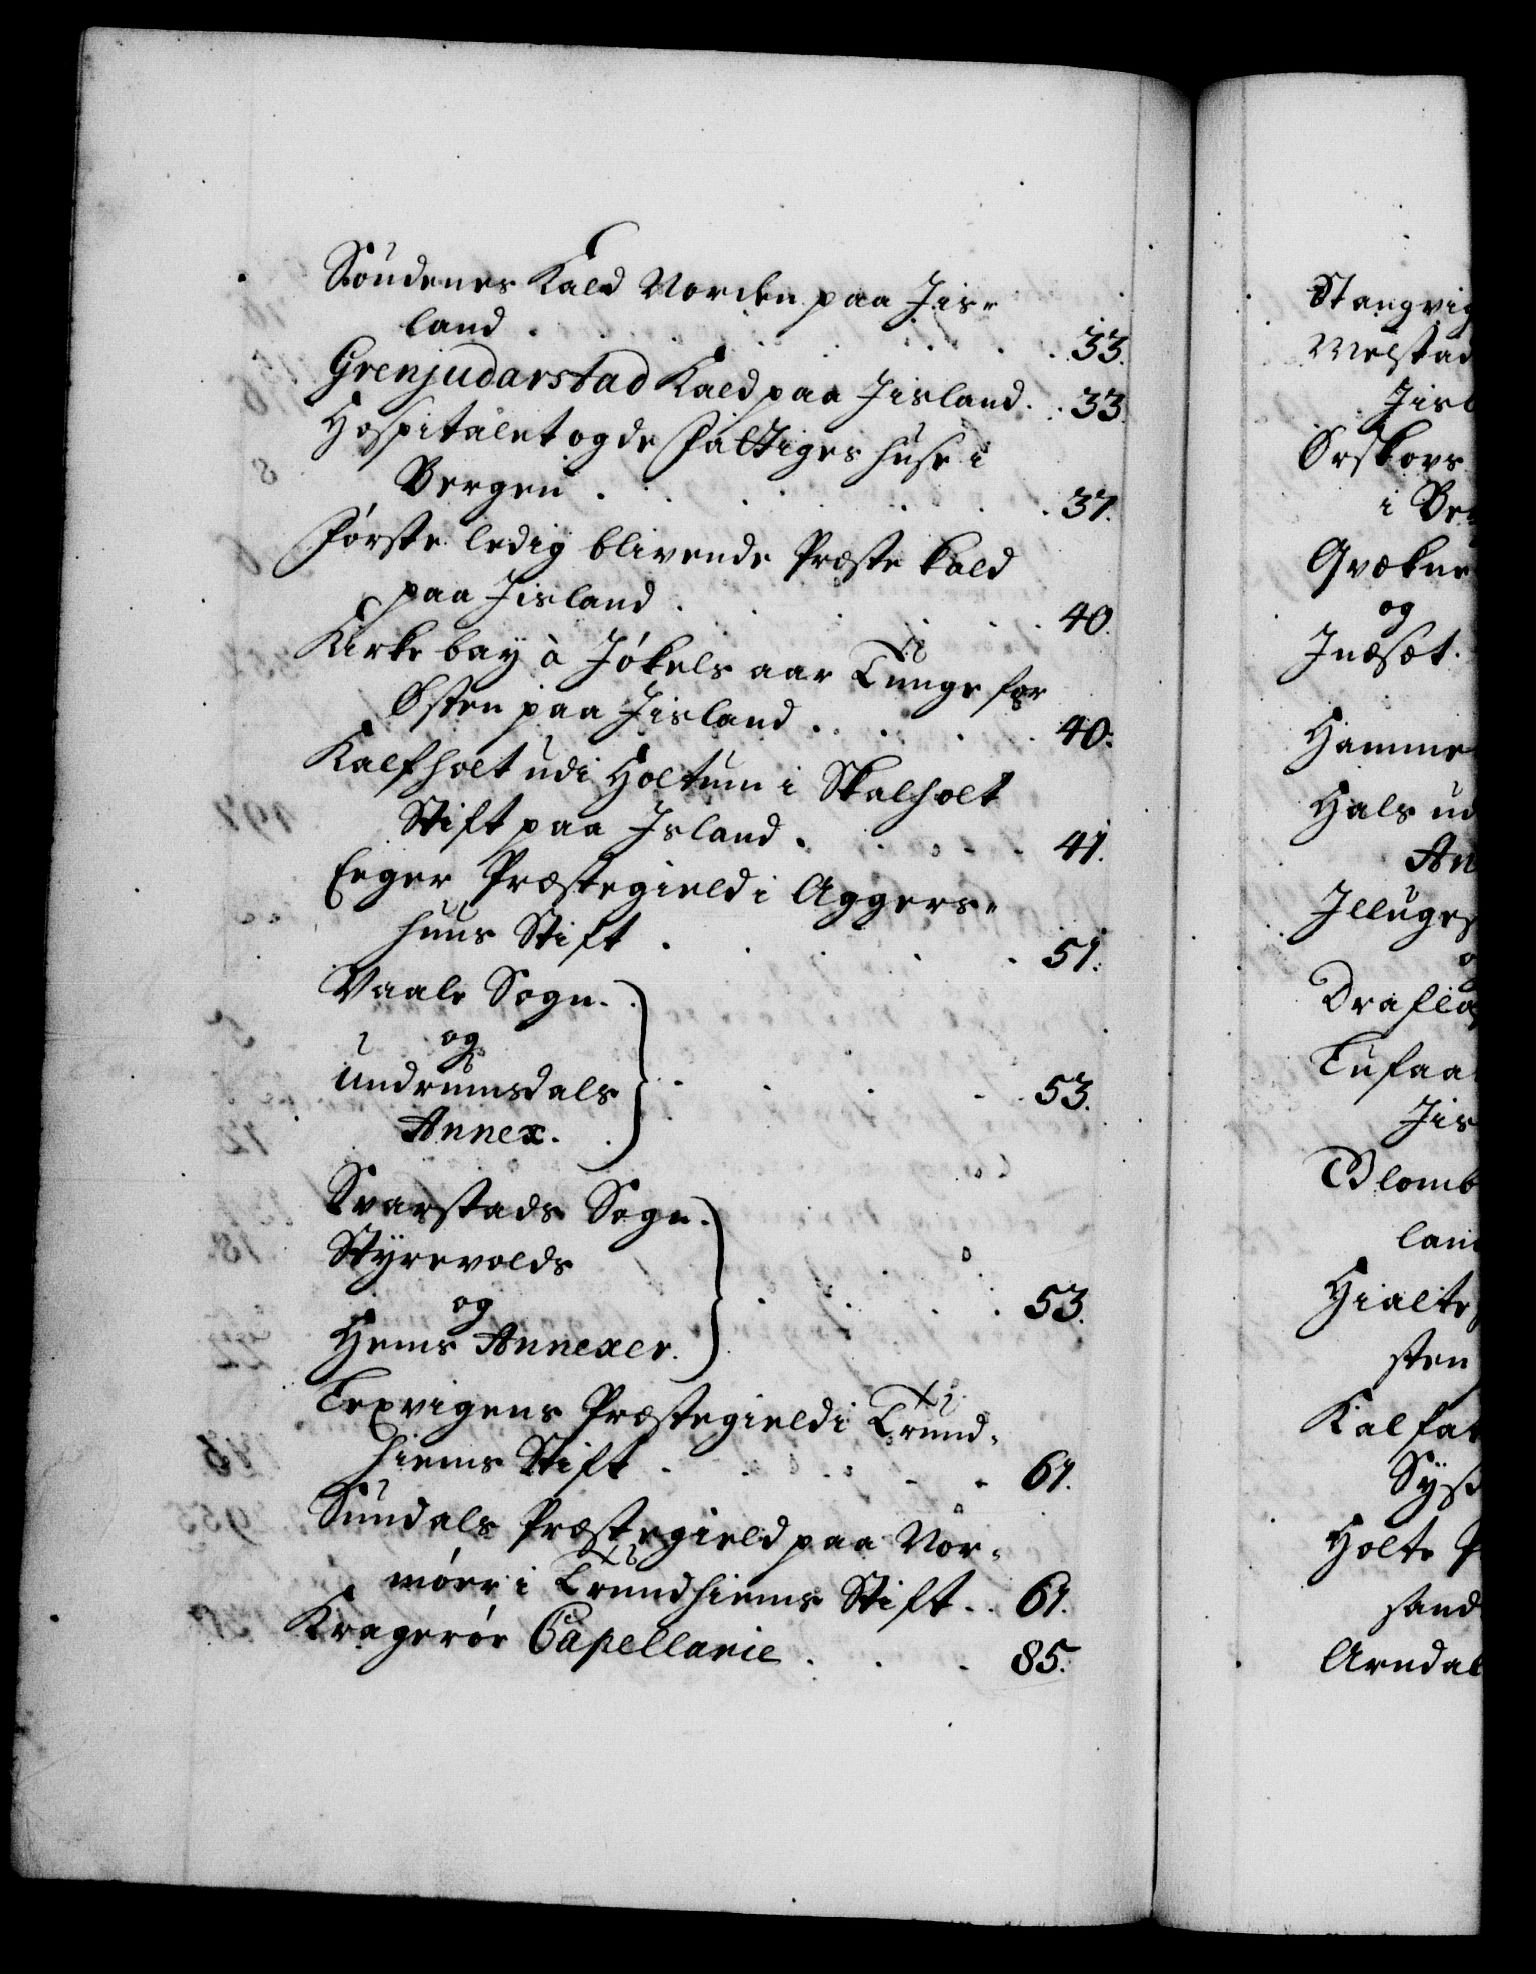 Soudenes Kald Norden paa Jis-
land . . . . . . 33.
Grenjudarstad Kald paa Jisland . . 33.
Hospitalet og de fattiges huse i
Bergen . . . . . . 37.
første ledig blivende Præste kald
paa Jisland . . . . . 40.
Kirkebay à Jökels aar Tunge for
Østen paa Jisland . . . . 40.
Kalfholt udi Holtum i Skalholt
Stift paa Jsland . . . . 41.
Eeger Præstegield i Aggers-
huus Stift . . . . . 51.
Vaale Sogn .
og
Undrumsdals . . . . 53.
Annex .
Svarstads Sogn .
Styrvolds
og . . . . 53.
Hems Annexer .
Lexvigens Præstegield i Trund-
hiems Stift . . . . . 61.
Sundals Præstegield paa Nor-
møer i Trundhiems Stift . . 61.
Kragerøe Capellanie . . . 85.
Stangvig
Melstad
Jisl
Ørskovs
i Ber
Qvækne
og
Jnæset.
Hamme
Hals ud
An
Jlluges
o
Drafla
Tufaa
Jis
Blomb
land
Hialte
sten
Kalfa
Syss
Holte P
sand
Arndal